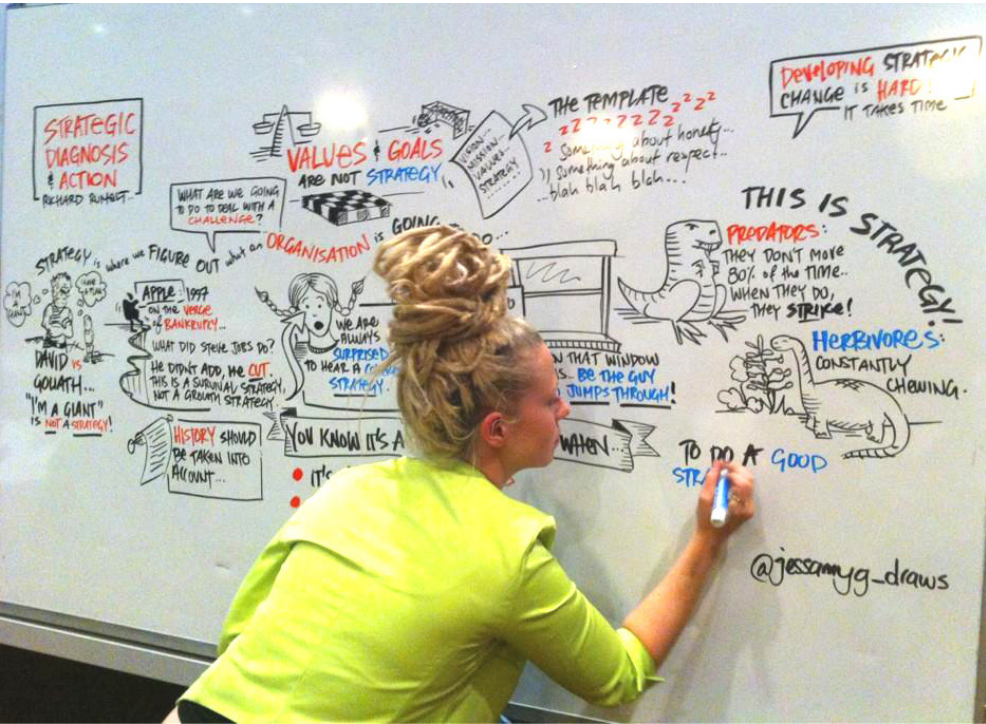 STRATEGIC
DIAGNOSIS
& ACTION
RICHARD RUMELT...
VALUES & GOALS
ARE NOT STRATEGY
VISION...
MISSION...
VALUES...
STRATEGY...
THE TEMPLATE
z z z z z z z z z z z
Something about honesty...
something about respect...
...blah blah blah...
DEVELOPING STRATEGIC
CHANGE is HARD!
IT TAKES TIME
WHAT ARE WE GOING
TO DO TO DEAL WITH A
CHALLENGE?
STRATEGY is where we FIGURE OUT what an ORGANISATION is GOING
DAVID vs
GOLIATH...
"I'M A GIANT"
IS NOT A STRATEGY!
APPLE: 1997
ON THE VERGE
of BANKRUPTCY...
WHAT DID STEVE JOBS DO?
HE DIDN'T ADD, HE CUT.
THIS IS A SURVIVAL STRATEGY,
NOT A GROWTH STRATEGY...
WE ARE
ALWAYS
SURPRISED
TO HEAR A
STRATEGY.
THAT WINDOW
BE THE GUY
JUMPS THROUGH!
THIS IS STRATEGY!
PREDATORS:
THEY DON'T MOVE
80% of the TIME..
WHEN THEY DO,
THEY STRIKE!
HERBIVORES:
CONSTANTLY
CHEWING.
HISTORY SHOULD
BE TAKEN INTO
ACCOUNT...
YOU KNOW IT'S A
WHEN...
IT'S
TO DO A GOOD
STR
@jessamyg_draws